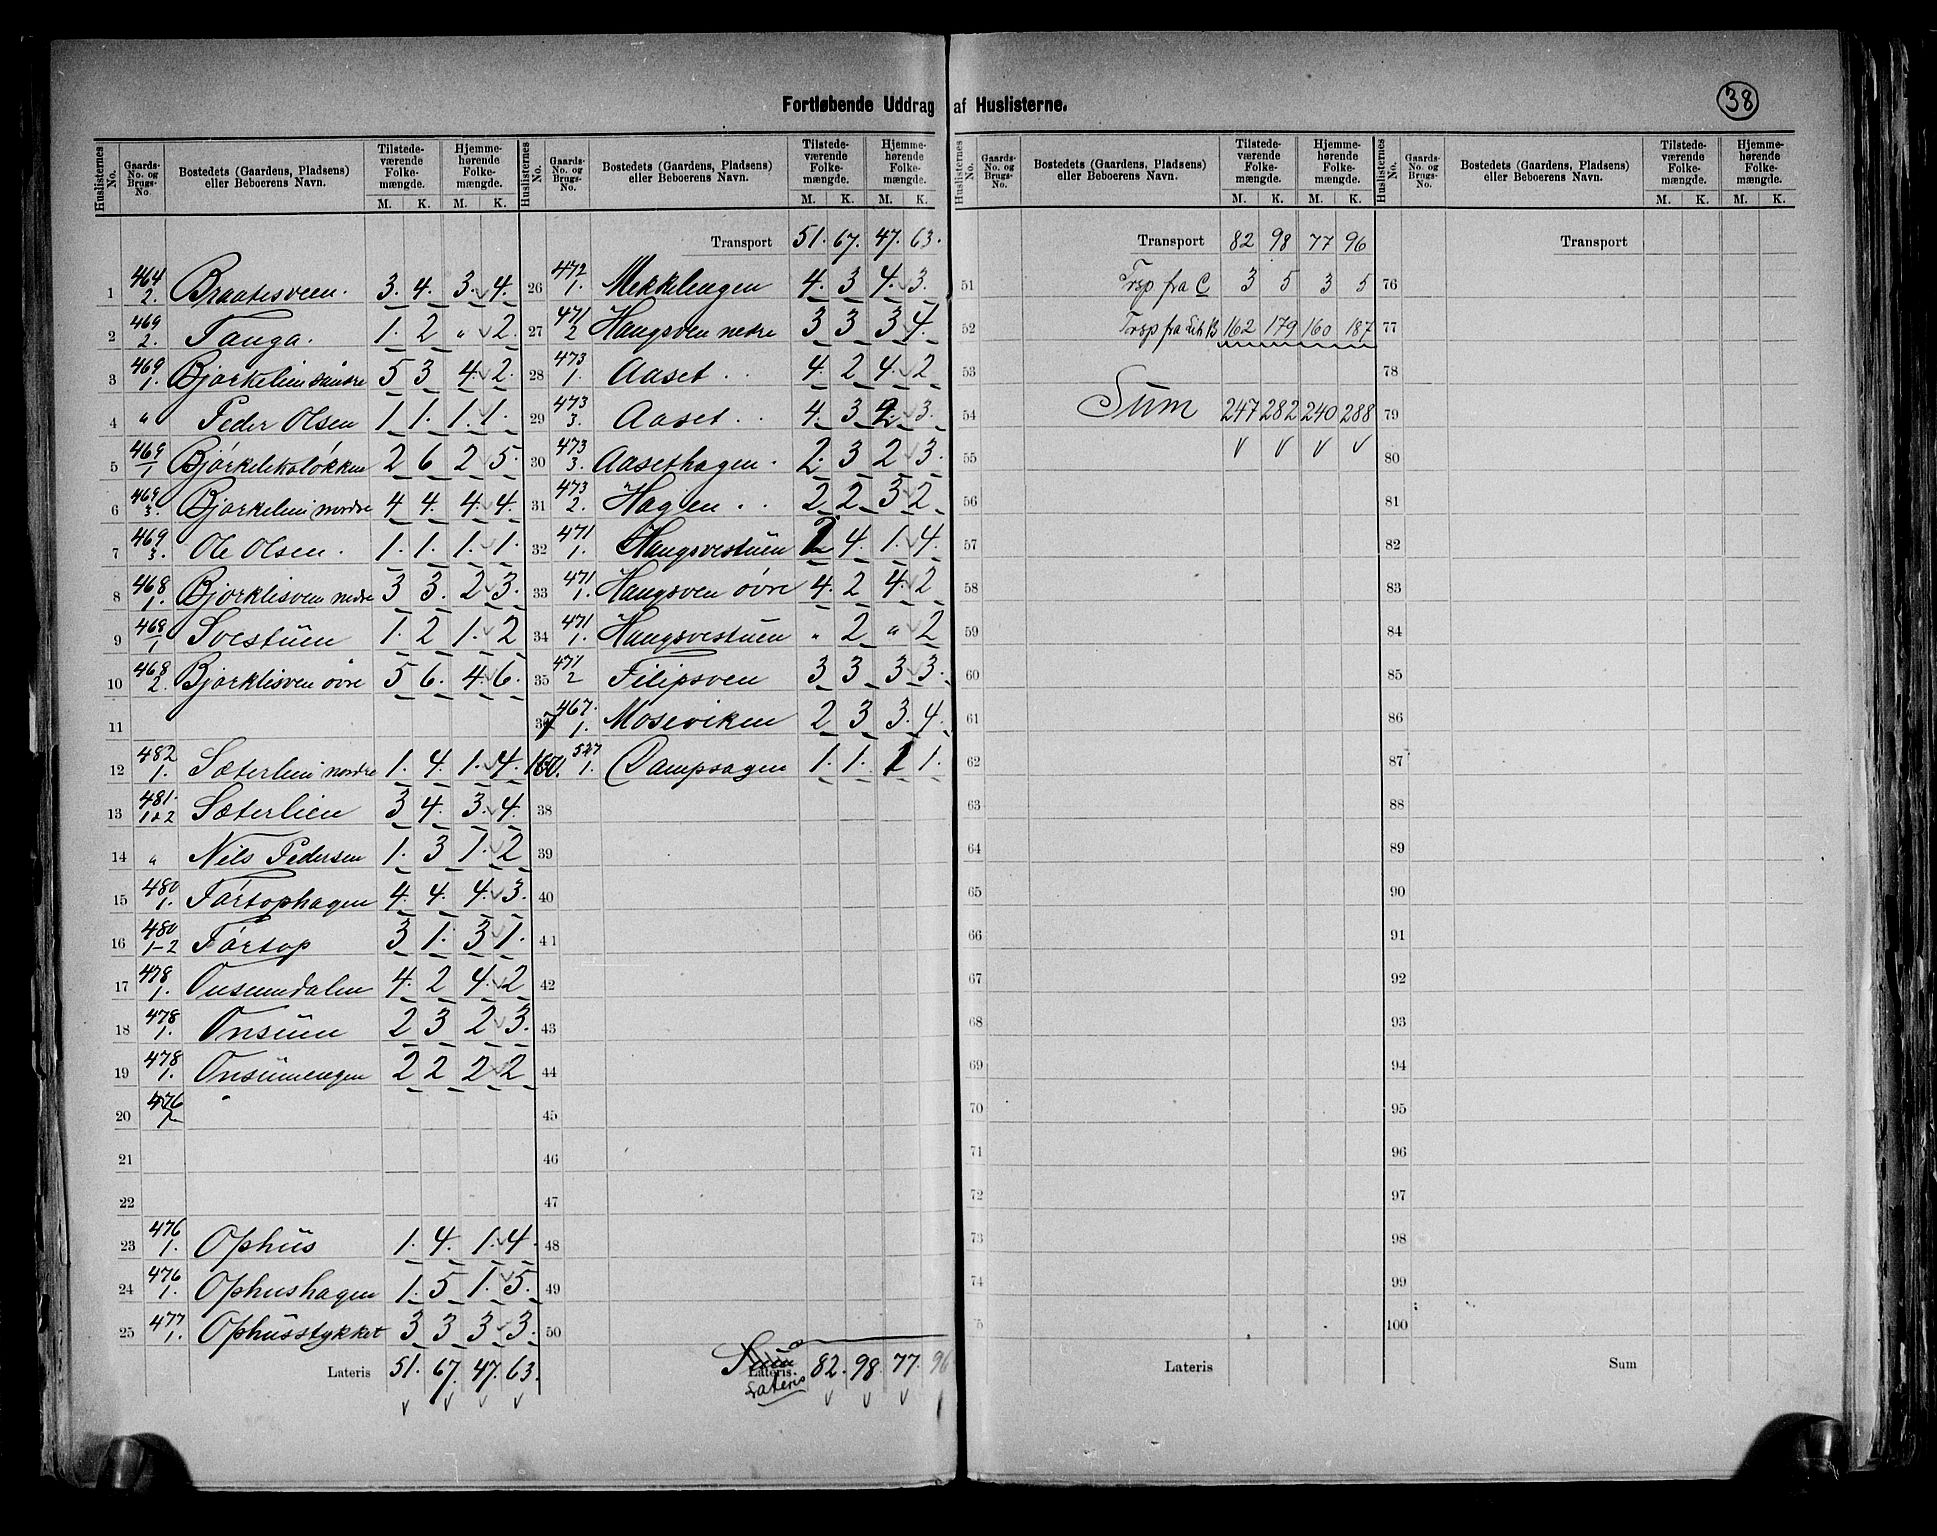 38
Fortløbende Uddrag af Huslisterne.
Huslisternes No. Gaards-No. og Brugs-No. Bostedets (Gaardens, Pladsens) eller Beboerens Navn. Tilstedeværende Folkemængde. M. K. Hjemmehørende Folkemængde. M. K.
1 464/2. Braatesveen. 3. 4. 3. 4.
2 469/2. Tanga. 1. 2 " 2.
3 469/1. Bjørkelien søndre 5 3 4. 2.
4 " Peder Olsen 1 1. 1. 1.
5 469/1 Bjørkelikoløkken 2 6 2 5.
6 469/3. Bjørkelien nordre 4 4. 4. 4.
7 469/3. Ole Olsen. 1. 1. 1. 1.
8 468/1. Bjørklisven nedre 3 3. 2 3.
9 468/1 Svestuen 1. 2 1. 2
10 468/2. Bjørklisven øvre 5 6. 4. 6.
11
12 482/1. Sæterlien nordre 1. 4. 1. 4.
13 481./1+2 Sæterlien 3 4. 3. 4.
14 " Nils Pedersen 1. 3 1. 2
15 480/1. Førtophagen 4. 4. 4. 3.
16 480/1-2 Førtop 3 1. 3 1.
17 478/1. Onsumdalen 4. 2 4. 2
18 478/1. Onsum 2 3 2 3.
19 478/1. Onsumengen 2 2 2 2
20 476/1
21
22
23 476/1. Ophus 1. 4. 1. 4.
24 476/1. Ophushagen 1. 5 1. 5.
25 477/1. Ophusstykket 3 3 3 3.
Lateris 51. 67. 47. 63.
Huslisternes No. Gaards-No. og Brugs-No. Bostedets (Gaardens, Pladsens) eller Beboerens Navn. Tilstedeværende Folkemængde. M. K. Hjemmehørende Folkemængde. M. K.
Transport 51. 67. 47. 63.
26 472/1. Mekkelengen 4. 3 4. 3.
27 471/2 Haugsven nedre 3 3 3 4.
28 473/1. Aaset . . 4. 2 4. 2
29 473/3. Aaset . . 4. 3 3.
30 473/3. Aasethagen. 2. 3 2 3.
31 473/2. Hagen . . 2 2 3 2.
32 471/1. Haugsvestuen 4. 1. 4.
33 471/1. Haugsven øvre 4. 2 4. 2
34 471/1. Haugsvestuen " 2 " 2
35 471/2 Filipsven 3 3 3 3.
467./1. Moseviken 2 3 3. 4.
527/1. Dampsagen 1. 1. 1.
38
39
40
41
42
43
44
45
46
47
48
49
50
Lateris. Lateris 82. 98. 77. 96
Huslisternes No. Gaards-No. og Brugs-No. Bostedets (Gaardens, Pladsens) eller Beboerens Navn. Tilstedeværende Folkemængde. M. K. Hjemmehørende Folkemængde. M. K.
Transport 82 98 77 96
51 Trsp fra C 3 5 3 5
52 Trsp fra Litr B 162 179 160 187
53
54 Sum 247 282 240 288
55
56
57
58
59
60
61
62
63
64
65
66
67
68
69
70
71
72
73
74
5
Lateris
Huslisternes No. Gaards-No. og Brugs-No. Bostedets (Gaardens, Pladsens) eller Beboerens Navn. Tilstedeværende Folkemængde. M. K. Hjemmehørende Folkemængde. M. K.
Transport
76
77
78
79
80
81
82
83
84
85
86
87
88
89
90
91
92
93
94
95
96
97
98
99
100
Sum